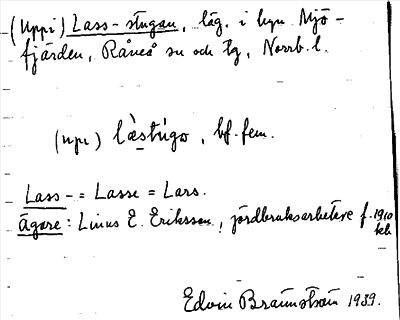 (Uppi) Lass-stugan, läg. i byn Mjö-
fjärden, Råneå sn och tg, Norrb. l.
(upi) lɑ̀stúgo, bf. fem.
Lass- = Lasse = Lars.
Ägare: Linus E. Eriksson, jordbruksarbetare f. 1910
kb.
Edvin Brännström 1939.